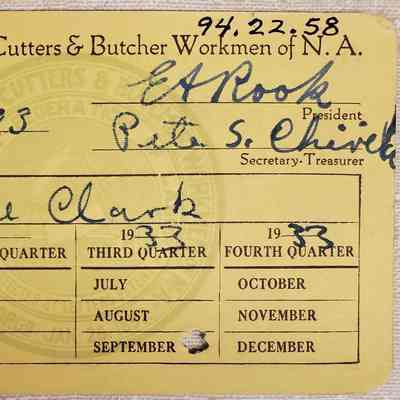 94.22.58
Cutters & Butcher Workmen of N. A.
EA Rook
President
Pete S.
Secretary-Treasurer
Clark
19 33 19 33
QUARTER THIRD QUARTER FOURTH QUARTER
JULY OCTOBER
AUGUST NOVEMBER
SEPTEMBER DECEMBER
CUTTERS &